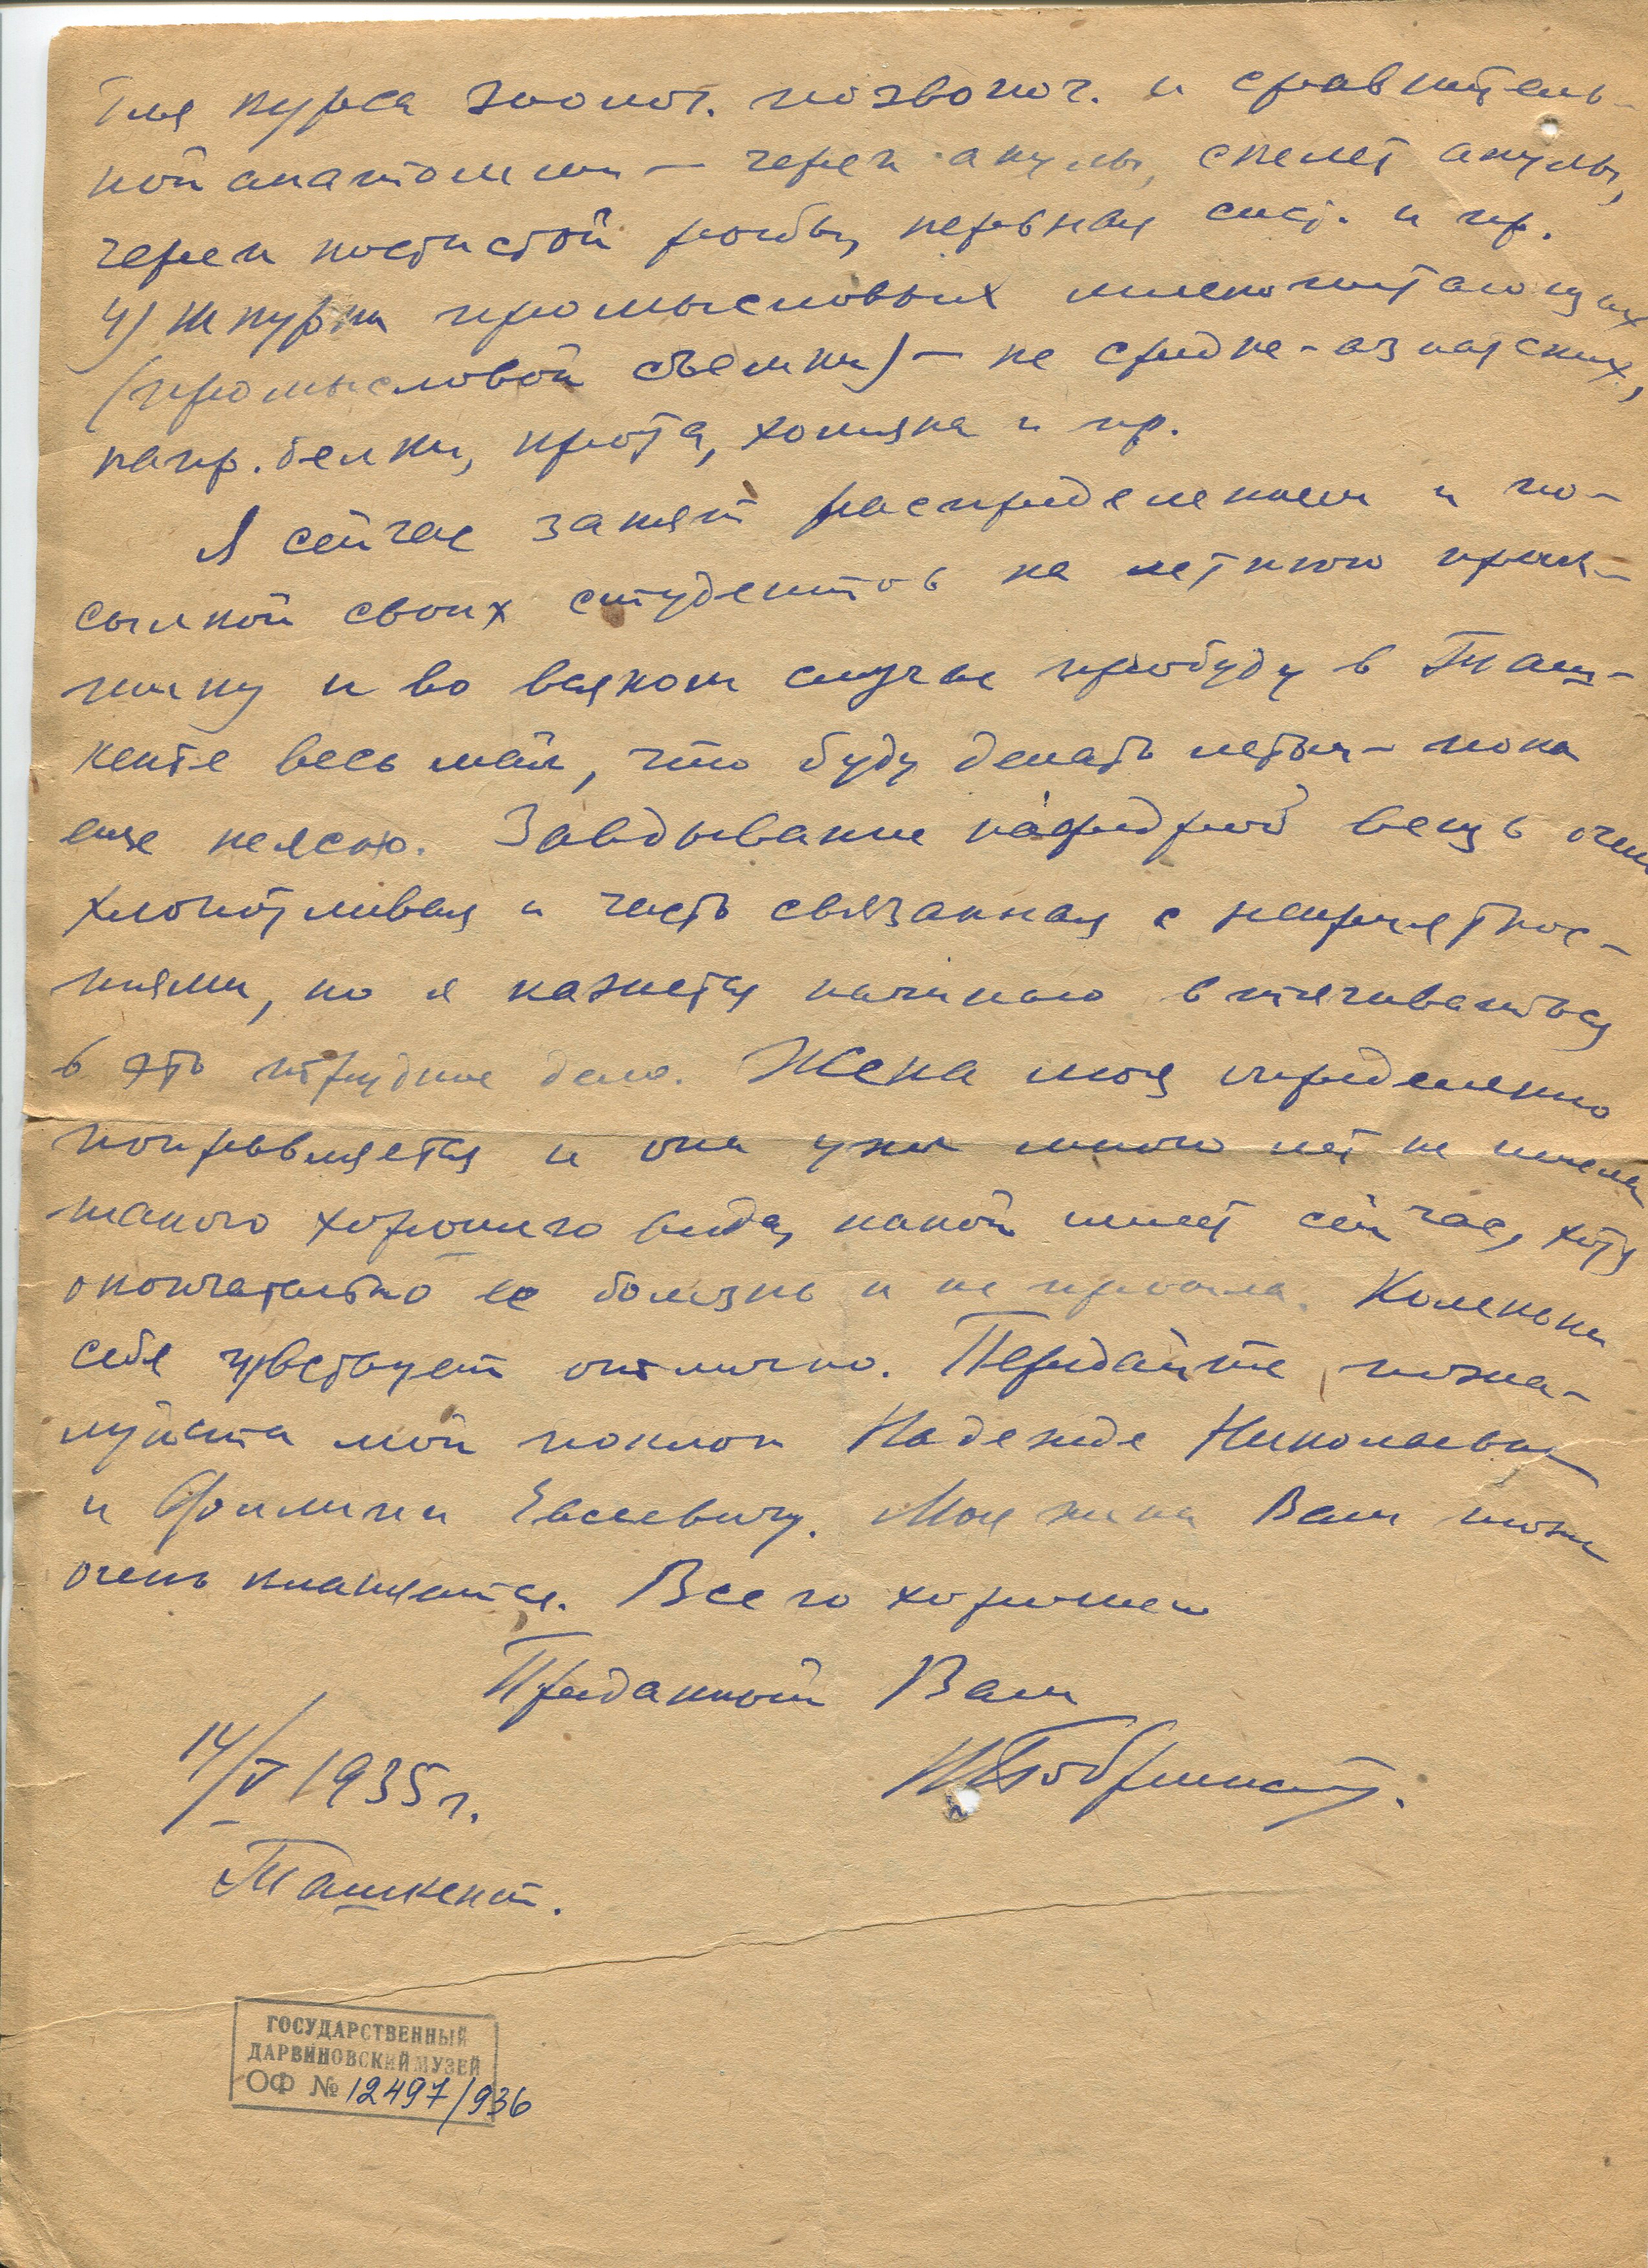 для курса зоолог. позвоноч. и сравнитель-
ной анатомии — череп акулы, скелет акулы,
череп костистой рыбы, нервная сист. и пр.
4) Шкурки промысловых млекопитающих
(промысловой съемки) — не средне-азиатских,
напр. белки, крота, хомяка и пр.
Я сейчас занят распределением и по-
сылкой своих студентов на летнюю прак-
тику и во всяком случае пробуду в Таш-
кенте весь май, что буду делать летом — пока
еще неясно. Заведывание кафедрой вещь очень
хлопотливая и часто связанная с неприятнос-
тями, но я кажется начинаю втягиваться
в это трудное дело. Жена моя определенно
поправляется и она уже много лет не имела
такого хорошего вида, какой имеет сейчас, хотя
окончательно ее болезнь и не прошла. Коленька
себя чувствует отлично. Передайте, пожа-
луйста мой поклон Надежде Николаевне
и Филиппу Евсеевичу. Моя жена Вам тоже
очень кланяется. Всего хорошего
Преданный Вам
14/V 1935 г.
Ташкент.
ГОСУДАРСТВЕННЫЙ
ДАРВИНОВСКИЙ МУЗЕЙ
ОФ № 12497/936